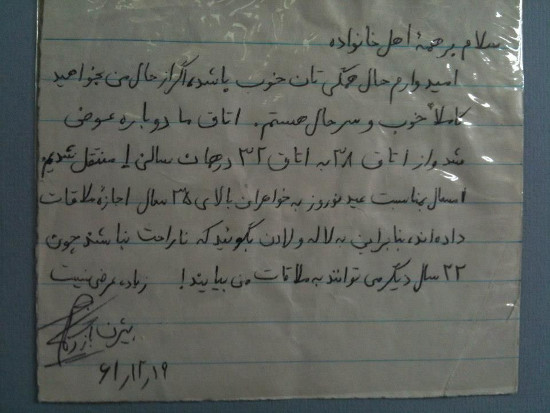 سلام بر همهٔ اهل خانواده
امیدوارم حال همگی تان خوب باشد، اگر از حال من بخواهید
کاملاً خوب و سرحال هستم. اتاق ما دوباره عوض
شد و از اتاق ۳۸ به اتاق ۳۲ در همان سالن ۱ منتقل شدیم.
امسال بمناسبت عید نوروز به خواهران بالای ۳۵ سال اجازهٔ ملاقات
داده‌اند، بنابراین به لاله و لادن بگوئید که ناراحت نباشند چون
۲۲ سال دیگر می توانند به ملاقات من بیایند! زیاده عرضی نیست
بیژن
۶۱/۱۲/۱۹